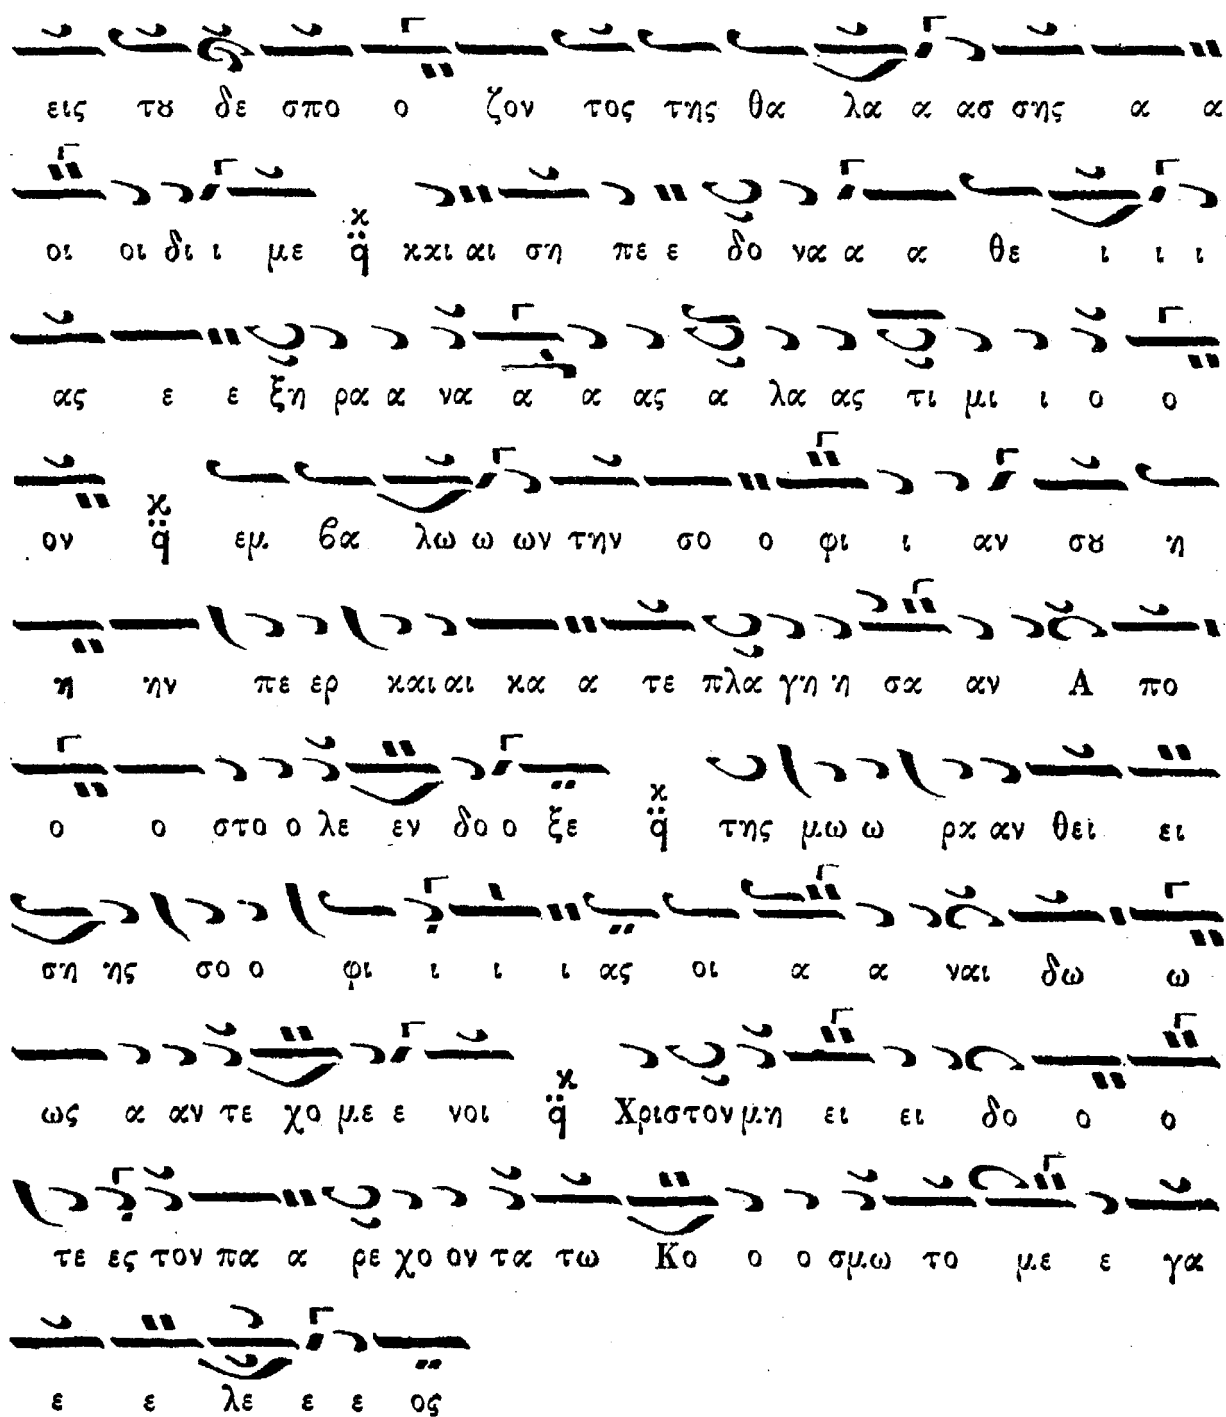 εις τȣ δε σπο ο ζον τος της θα λα α ασ σης α α
οι οι δι ι με κ q̈ κκι αι ση πε ε δο να α α θε ι ι ι
ας ε ε ξη ρα α να α α ας α λα ας τι μι ι ο ο
ον κ q̈ εμ βα λω ω ων την σο ο φι ι αν σȣ η
η ην πε ερ και αι κα α τε πλα γη η σα αν Α πο
ο ο στο ο λε εν δο ο ξε κ q̈ της μω ω ρα αν θει ει
ση ης σο ο φι ι ι ι ας οι α α ναι δω ω
ως α αν τε χο με ε νοι κ q̈ Χριστον μη ει ει δο ο ο
τε ες τον πα α ρε χο ον τα τω Κο ο ο σμω το με ε γα
ε ε λε ε ε ος